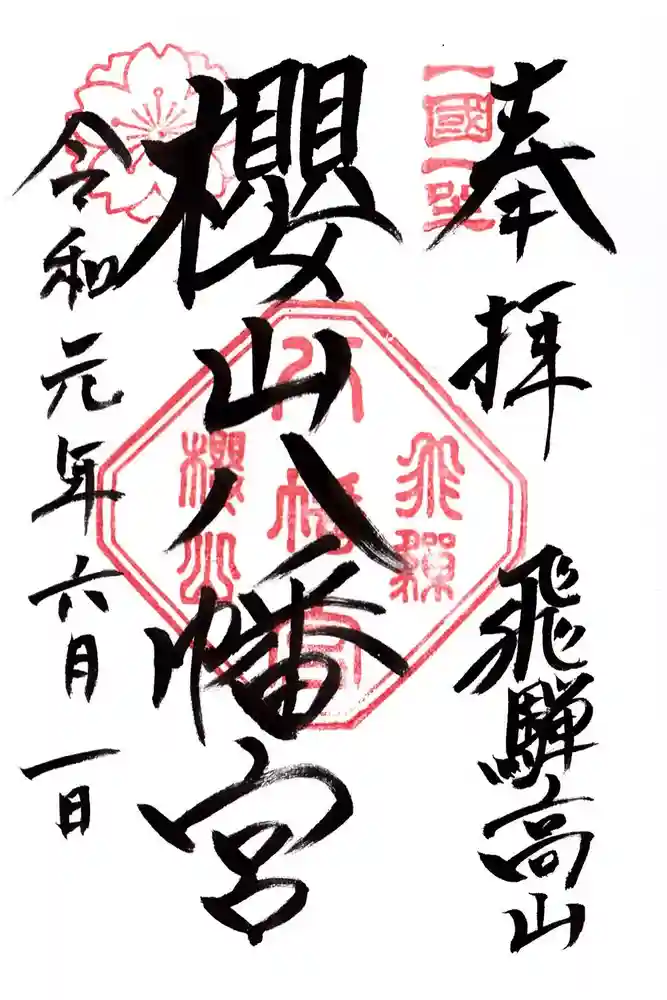 奉拝
飛騨高山
一國一社
櫻山八幡宮
飛騨
八幡宮
櫻山
令和元年六月一日